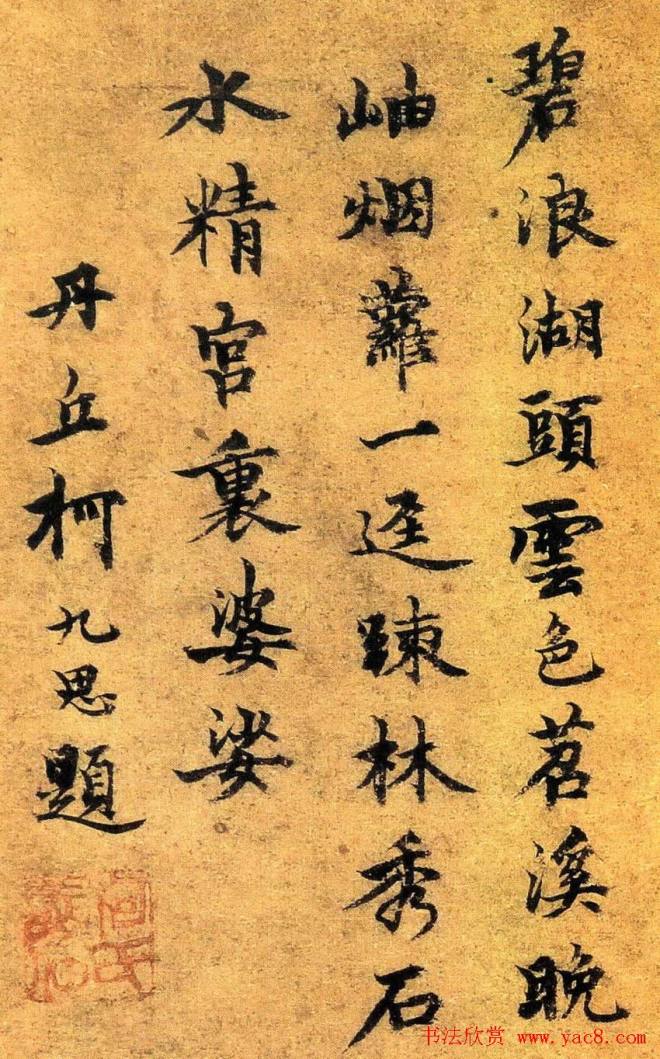 碧浪湖頭雲色苕溪晚
岫烟蘿一逕踈林秀石
水精宮裏婆娑
丹丘柯九思題
书法欣赏 www.yac8.com